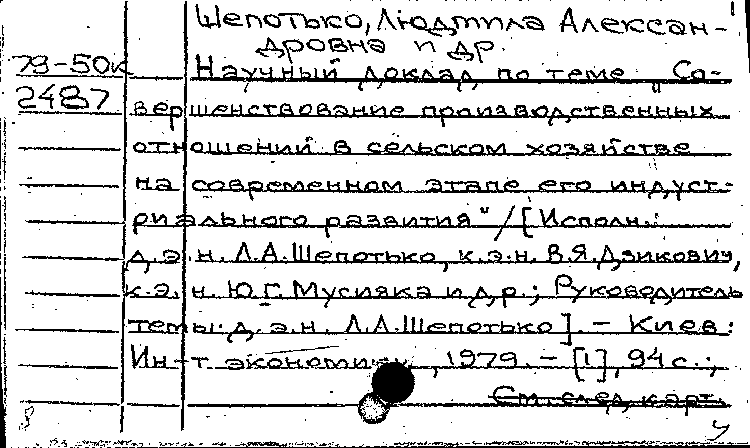 Шепотько, Людмила Алексан-
дровна и др.
79-50к Научный доклад по теме „Со-
2487 вершенствование производственных
отношений в сельском хозяйстве
на современном этапе его индуст-
риального развития" / [Исполн.:
д.э.н. Л.А.Шепотько, к.э.н. В.Я.Дзикович,
к.э.н. Ю.Г. Мусияка и др.; Руководитель
темы: д.э.н. Л.А.Шепотько]. - Киев:
Ин-т экономики, 1979. - [1], 94 с.;
См. след. карт.